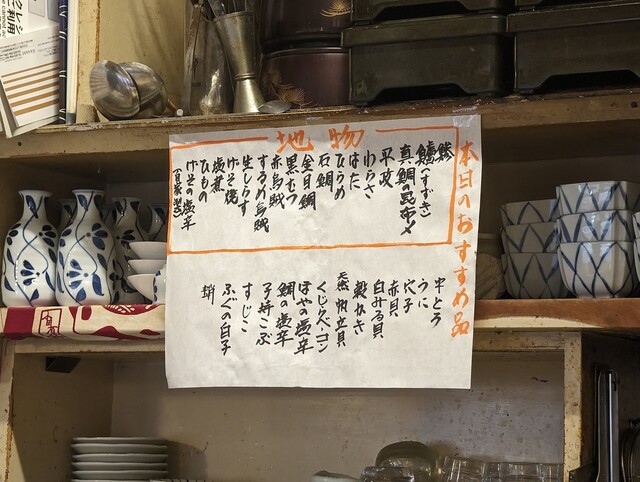 本日のおすすめ品
地物
鯵
鱸(すずき)
真鯛の昆布〆
平政
わらさ
はた
ひらめ
石鯛
金目鯛
黒むつ
赤烏賊
するめ烏賊
生しらす
げそ焼
塩煮
ひもの
げその塩辛
(自家製)
中とろ
うに
穴子
赤貝
白みる貝
殻かき
天然 帆立貝
くじらベーコン
ほやの塩辛
鯛の塩辛
子持こぶ
すじこ
ふぐの白子